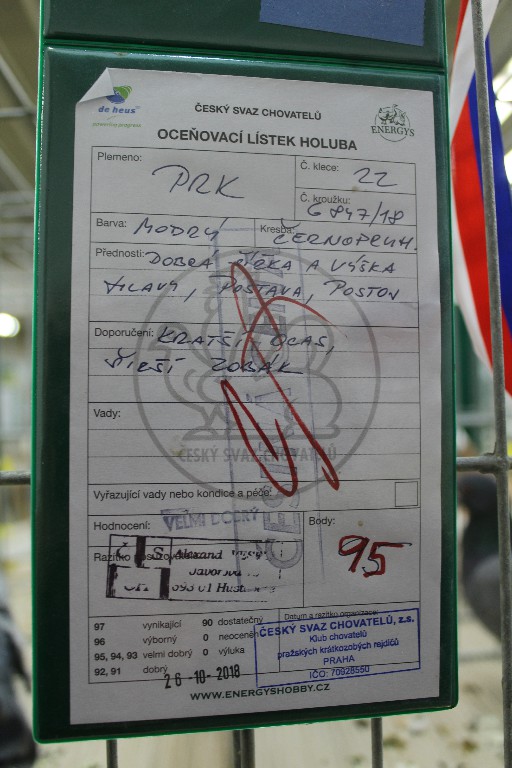 de heus
ČESKÝ SVAZ CHOVATELŮ
ENERGYS
OCEŇOVACÍ LÍSTEK HOLUBA
Plemeno: PRK
Č. klece: 22
Č. kroužku: 6847/18
Barva: MODRÝ
Kresba: ČERNOPRUH.
Přednosti: DOBRÁ ŠÍŘKA A VÝŠKA
HLAVY, POSTAVA, POSTOJ
Doporučení: KRATŠÍ OCAS,
ŠIRŠÍ ZOBÁK
ČESKÝ SVAZ CHOVATELŮ
Vady:
Vyřazující vady nebo kondice a péče:
Hodnocení: VELMI DOBRÝ
Body: 95
Razítko
Alexand
97 vynikající 90 dostatečný
96 výborný 0 neoceněn
95, 94, 93 velmi dobrý 0 výluka
92, 91 dobrý
26-10-2018
Datum a razítko organizace:
ČESKÝ SVAZ CHOVATELŮ, z.s.
Klub chovatelů
pražských krátkozobých rejdičů
PRAHA
IČO: 70926550
WWW.ENERGYSHOBBY.CZ